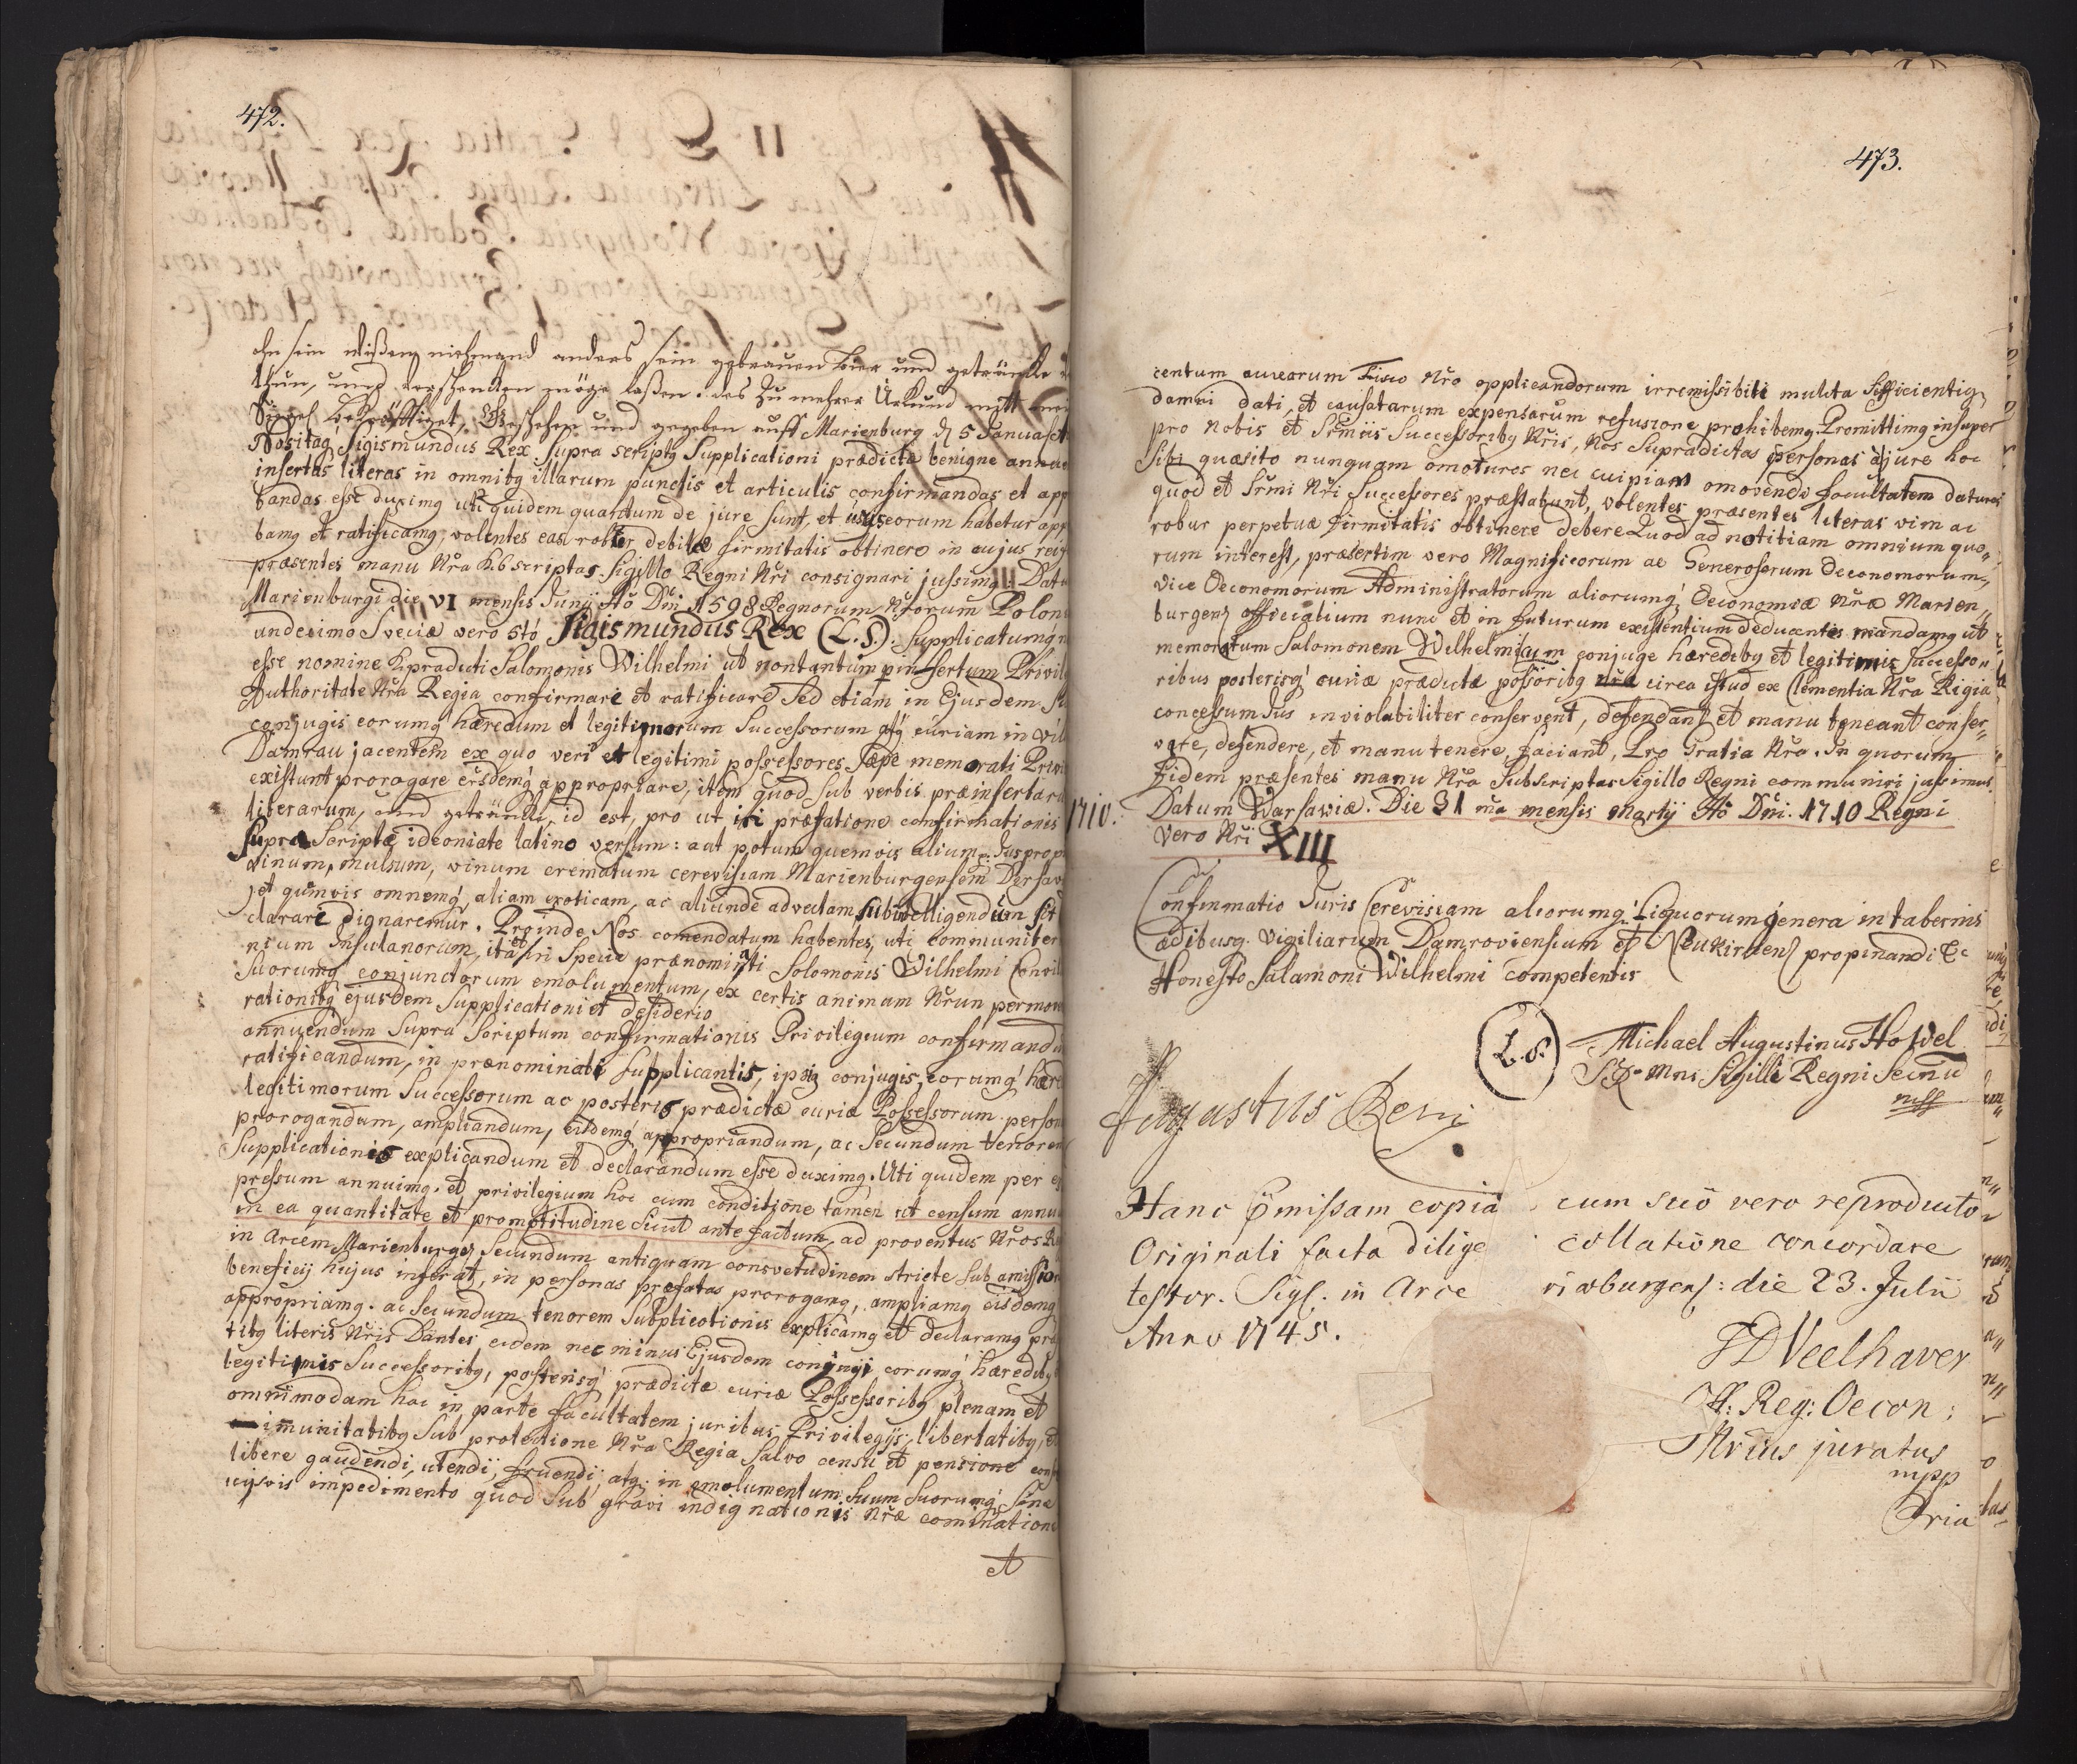 472.
ohn sein wißen niehmand anders sein gebrauen bier und geträncke
thun, und verschencken möge laßen. das zu mehrer Urkund mitt
Siegel bekräfftiget. Geschehen und gegeben auff Marienburg d 5 Januar
Nositaq Sigismundus Rex supra scriptq Supplicationi prædictæ benigne annue
insertas literas in omnibq illarum punctis et articulis confirmandas et app
bandas esse duximq uti quidem quantum de jure sunt, et usus eorum habetur app
bamq et ratificamq, volentes eas robur debitæ firmitatis obtinere in cujus rei
præsentes manu Nra Subscriptas Sigillo Regni Nri consignari jussimq. Datu
Marienburgi die VI mensis Junij Ao Dni 1598 Regnorum Nrorum Polon
undecimo Sveciæ vero 5to Sigismundus Rex (L.S). Supplicatumq
esse nomine supradicti Salomonis Wilhelmi ut non tantum p insertum Privile
Authoritate Nra Regia confirmare et ratificare sed etiam in Ejusdem
conjugis eorumq hæredum et legitimorum Successorum atq curiam in vil
Damrau jacentem ex quo veri et legitimi possessores sæpe memorati Privi
existunt prorogare eisdemq appropriare, item quod sub verbis præinsertaru
literarum, und geträncke, id est, pro ut in præfatione confirmationis
supra scriptæ ideoniate latino versum: aut potum quemvis alium: Jus propi
dinum, mulsum, vinum crematum cerevisiam Marienburgensem Dirsav
et quamvis omnemq aliam exoticam, ac aliunde advectam subintelligendum sit
clarare dignaremur. Proinde Nos comendatum habentes, uti communiter
nsum Insulanorum, ita et in specie prænominati Solomonis Wilhelmi
suorumq conjunctorum emolumentum, ex certis animam Nrum permov
rationibq ejusdem Supplicationi et desiderio
annuendum supra scriptum confirmationis Privilegium confirmandu
ratificandum, in prænominati supplicantis, ipsiq conjugis, eorumq hære
legitimorum Successorum ac posteros prædictæ curiæ Possessorum person
prorogandum, ampliandum, eisdemq appropriandum, ac secundum tenorem
Supplicationis explicandum et declarandum esse duximq. Uti quidem per ex
pressum annuimq. et privilegium hoc cum conditione tamen ut censum annu
in ea quantitate et promptitudine sicut ante factum, ad proventus Nros R
in Arcem Marienburgen secundum antiquam consvetudinem stricte sub amission
beneficij hujus inferat, in personas præfatas prorogamq, ampliamq eisdemq
appropriamq. ac secundum tenorem Supplicationis explicamq et declaramq
tibq literis Nris Dantes eidem nec minus Ejusdem conjugi eorumq hæredibq
legitimis Successoribq, posterisq prædictæ curiæ Possessoribq plenam et
omnimodam hac in parte facultatem juribus, Privilegijs, libertatibq, et
imunitatibq sub protectione Nra Regia Salvo censu et pensione
libere gaudendi, utendi, fruendi atq in emolumentum suum suorumq sine
cujsvis impedimento quod sub gravi indignationis Nræ cominatione
et
473.
centum aureorum Fisco Nro applicandorum irremissibili mulcta sufficientiq
damni dati, et causatarum expensarum refusione prohibemq. Promittimq insuper
pro nobis et Srmiis Successoribq Nris, Nos supradictas personas à jure hoc
sibi quæsito nunquam amoturos nec cuipiam amovendi facultatem daturos
quod et Srmi Nri Successores præstabunt, volentes præsentes literas vim ac
robur perpetuæ firmitatis obtinere debere Quod ad notitiam omnium quo„
rum interest, præsertim vero Magnificorum ac Generosorum Oeconomorum,
Vice Oeconomorum Administratorum aliorumq Oeconomiæ Nræ Marien„
burgens officialium nunc et in futurum existentium deducentes mandamq ut
memoratum Salomonem Wilhelmi cum conjuge hæredibq et legitimis Successo„
ribus posterisq curiæ prædictæ possoribq circa istud ex Clementia Nra Regia
concessum Jus inviolabiliter conservent, defendant et manu teneant conser„
vare, defendere, et manutenere, faciant, Pro Gratia Nra. In quorum
fidem præsentes manu Nra Subscriptas Sigillo Regni communiri jussimus.
1710. Datum Warsawiæ. Die 31 ma mensis Martij Ao Dni. 1710 Regni
Vero Nri XIII
Confirmatio Juris Cerevisiam aliorumq Liquorum genera in tabernis
ædibusq. Vigiliarum Damroviensium et Neukirchens propinandi &c
Honesto Salamoni Wilhelmi competentis
(L.S.) Michael Augustinus Howel
S R Mtis Sigilli Regni Secrius
mpp
Augustus Rex
Hanc Emissam copia cum suo vero reproducto
Originali facta dilige collatione concordare
testor. Sigl. in Arce riæburgens: die 23. Julii
Anno 1745.
J D Veelhaver
Reg: Oecon:
Notarius juratus
mpp